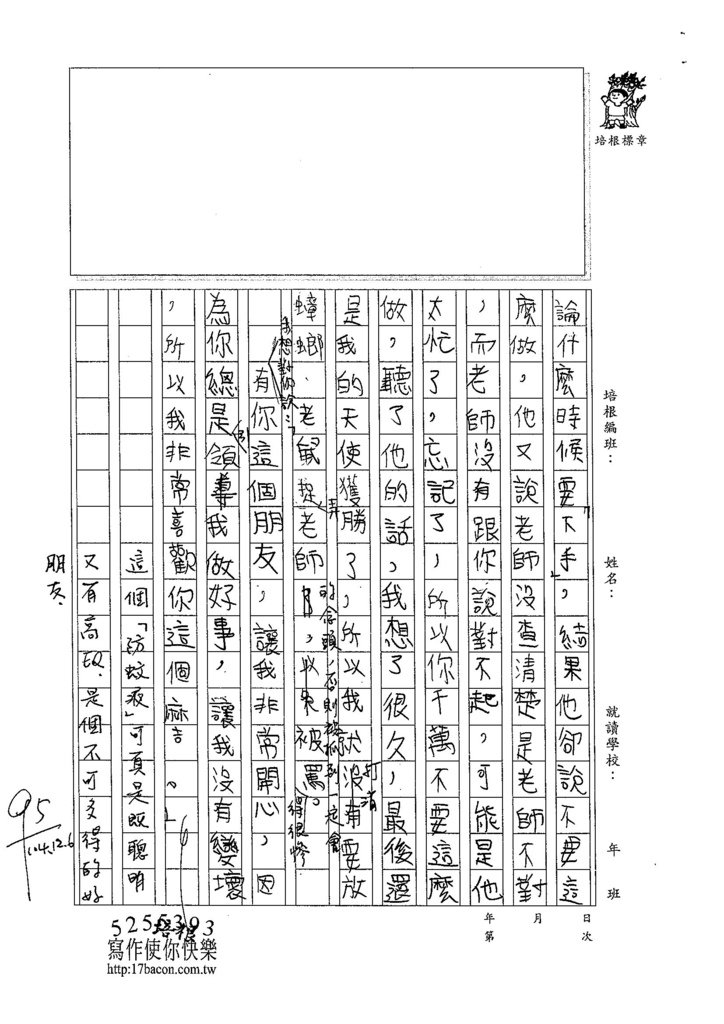 培根標章
培根編班：
姓名：
就讀學校：
年
班
日
月
年
次
第
論什麼時候要「下手」，結果他卻說不要這
麼做，他又說老師沒查清楚是老師不對
，而老師沒有跟你說對不起，可能是他
太忙了，忘記了，所以你千萬不要這麼
做，聽了他的話，我想了很久，最後還
是我的天使獲勝了，所以我就沒有要放
打消
蟑螂、老鼠老師，以免被罵。
弄
的念頭，否則被抓到一定會
得很慘
我想對你說：「
有你這個朋友，讓我非常開心，因
為你總是領導我做好事，讓我沒有變壞
，所以我非常喜歡你這個麻吉。」
這個「防蚊液」可真是既聰明
又有高EQ，是個不可多得的好
朋友。
95
104.12.6
5255393
培根
寫作使你快樂
http:17bacon.com.tw